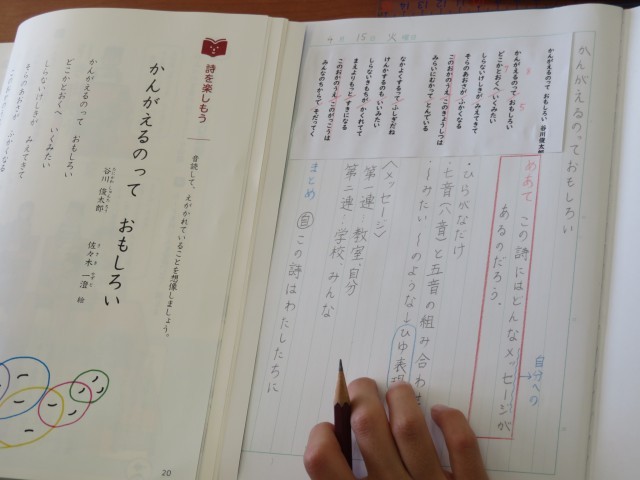 詩を楽しもう
音読して、えがかれていることを想像しましょう。
かんがえるのって おもしろい
谷川 俊太郎
たにかわ しゅんたろう
佐々木 一澄 絵
かんがえるのって おもしろい
どこかとおくへ いくみたい
しらないけしきが みえてきて
そらのあおさが ふかくなる
20
4月 15日 火曜日
かんがえるのっておもしろい
かんがえるのって おもしろい 谷川俊太郎
かんがえるのって おもしろい
どこかとおくへ いくみたい
しらないけしきが みえてきて
そらのあおさが ふかくなる
このおかのうえ このきょうしつは
みらいにむかって とんでいる
なかよくするって ふしぎだね
けんかするのも いいみたい
しらないきもちが かくれてて
まえよりもっと すきになる
このおかのうえ このがっこうは
みんなのちからで そだってく
5
めあて この詩にはどんなメッセージが
あるのだろう。
→自分への
・ひらがなだけ
・七音(八音)と五音の組み合わせ
・〜みたい 〜のような→ひゆ表現
〈メッセージ〉
第一連 教室、自分
第二連 学校、みんな
まとめ 自 この詩はわたしたちに